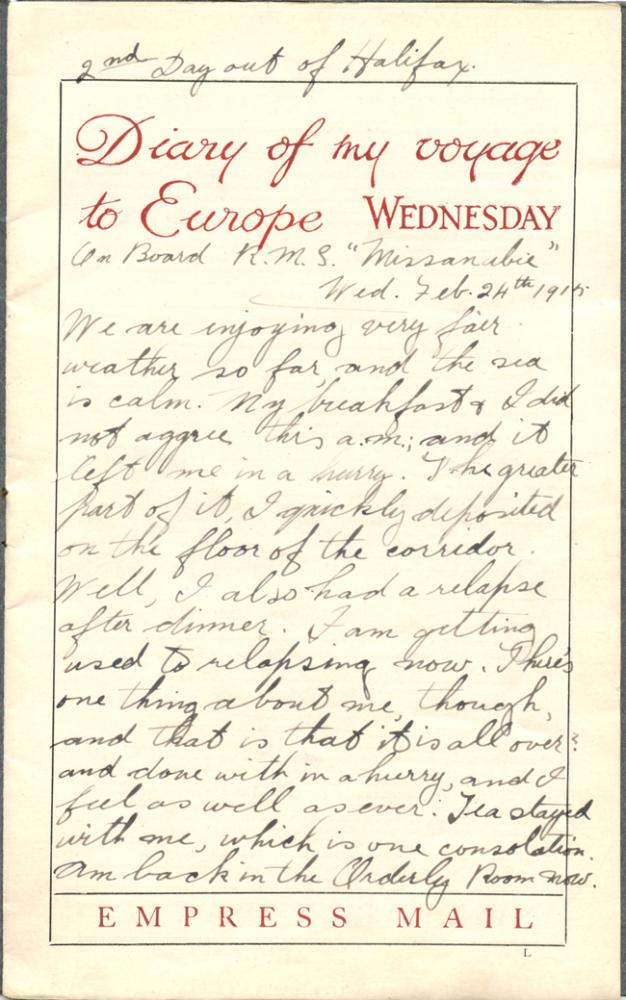 2nd Day out of Halifax.
Diary of my voyage
to Europe WEDNESDAY
On Board R.M.S. "Missanabie"
Wed. Feb. 24th 1915
We are enjoying very fair
weather so far and the sea
is calm. My breakfast & I did
not aggree this a.m.; and it
left me in a hurry. The greater
part of it, I quickly deposited
on the floor of the corridor.
Well, I also had a relapse
after dinner. I am getting
used to relapsing now. There's
one thing about me, though,
and that is that it is all over
and done with in a hurry, and I
feel as well as ever. Tea stayed
with me, which is one consolation.
Am back in the Orderly Room now.
EMPRESS MAIL
L